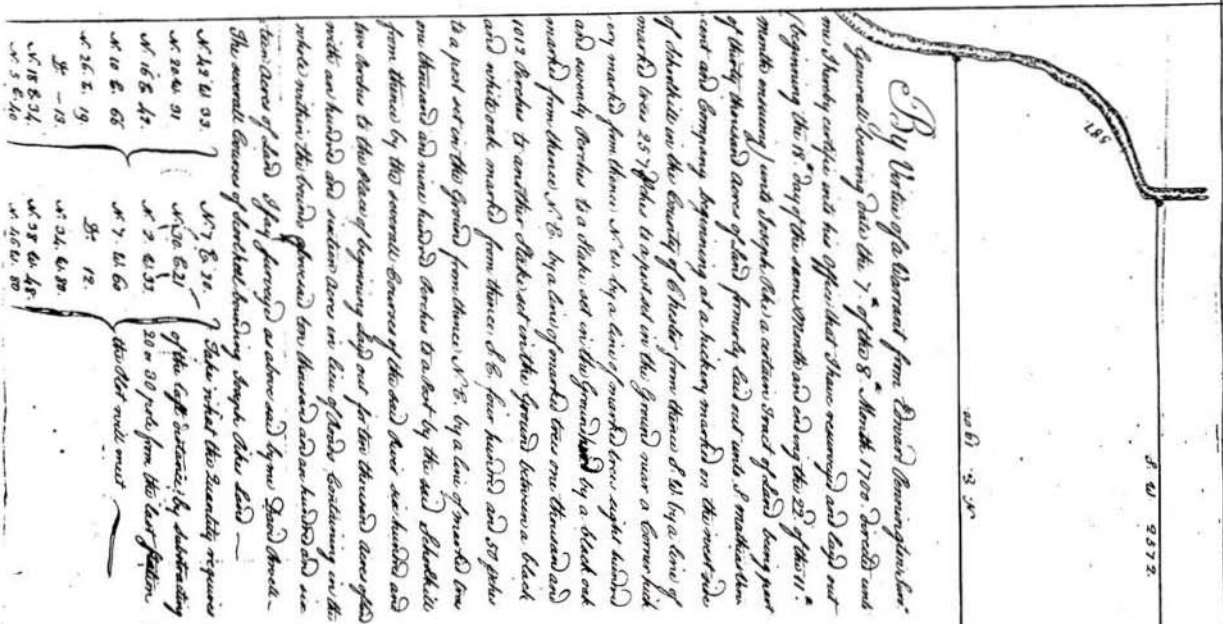 587
S. W 2572
N. E. 1901
By Virtue of a Warrant from Edward Penington Sur:
Generall bearing date the 7.th of the 8.th Month 1700. directed unto
me I hereby certifie unto his office that I have resurveyed and laid out
(beginning the 18.th day of the same Month and ending the 22 of the 11.th
month ensuing) unto Joseph Pike a certain Tract of Land being part
of thirty thousand Acres of land formerly laid out unto
and Company beginning at a hickory marked on the west side
of Skoolkill in the County of Chester from thence S. W. by a line of
marked trees 2572 pches to a post set in the Ground near a Corner hick
ery marked from thence N. W. by a line of marked trees eight hundred
and seventy Perches to a Stake set in the Ground by a black oak
marked from thence N. E. by a line of marked trees one thousand and
1012 Perches to another Stake set in the Ground between a black
and white oak marked from thence S. E. four hundred and 50 pches
to a post set in the Ground from thence N. E. by a line of marked trees
one thousand and nine hundred Perches to a Post by the said Schoolkill
from thence by the severall Courses of the said River six hundred and
two Perches to the Place of beginning Laid out for ten thousand Acres of land
with an hundred and sixteen acres in lieu of Roads Containing in the
whole within the bounds aforesaid ten thousand and an hundred and six
teen Acres of Land I say surveyed as above said by me David Powell —
The severall Courses of Skoolkool bounding Joseph Pikes Land —
N. 42 W 33. N. 7 E. 30. Take in what the Quantity requires
N. 20 W 31 N. 30 E. 21 of the last distance, by substracting
N. 16 E 42. N. 2 W 33. 20 or 30 pches from the last Station
N. 10 E. 66 N. 7. W 60 the Plot will meet
N. 26. E. 19. Do. 12.
Do. — 13. N. 34. W. 80.
N. 18 E. 34. N. 38 W. 48.
N. 5 E. 40 N. 46 W. 80